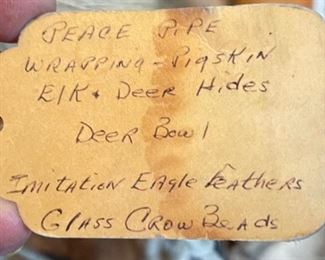 PEACE PIPE
WRAPPING - PIGSKIN
ElK & DEER HIDES
DEER BOWl
IMITATION EAGLE FEATHERS
GlASS CROW BEADS